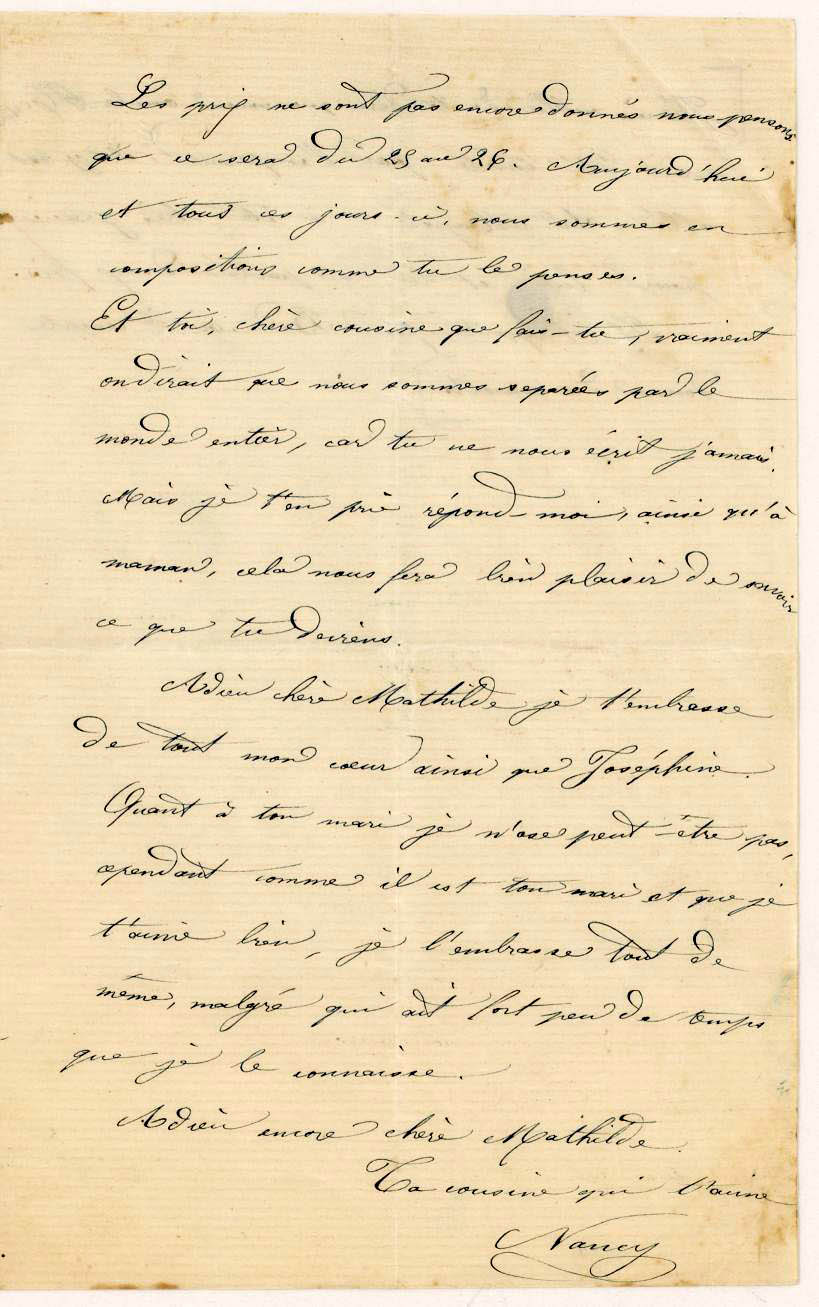 Les prix ne sont pas encore donnés nous pensons
que ce sera du 25 au 26. Aujourd'hui
et tous ces jours-ci, nous sommes en
compositions comme tu le penses.
Et toi, chère cousine que fais-tu, vraiment
on dirait que nous sommes separées par le
monde entier, car tu ne nous écrit jamais.
Mais je t'en prie répond-moi, ainsi qu'à
maman, cela nous fera bien plaisir de savoir
ce que tu deviens.
Adieu chère Mathilde je t'embrasse
de tout mon cœur ainsi que Joséphine.
Quant à ton mari je n'ose peut-être pas,
cependant comme il est ton mari et que je
t'aime bien, je l'embrasse tout de
même, malgré qui ait fort peu de temps
que je le connaisse.
Adieu encore chère Mathilde.
Ta cousine qui t'aime
Nancy